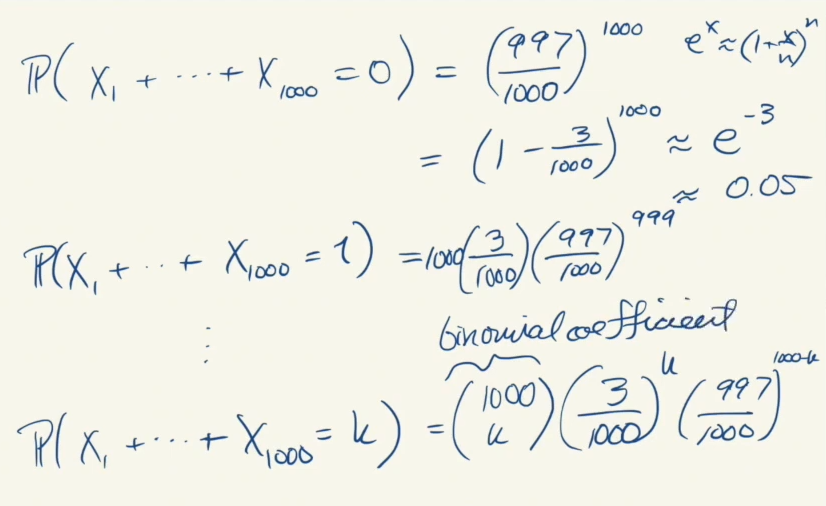 ℙ( X₁ + ··· + X₁₀₀₀ = 0 ) = (997/1000)^1000    e^x ≈ (1+x/n)^n
= (1 - 3/1000)^1000 ≈ e^-3
≈ 0.05
ℙ(X₁ + ··· + X₁₀₀₀ = 1) = 1000(3/1000)(997/1000)^999
⋮
binomial coefficient
ℙ( X₁ + ··· + X₁₀₀₀ = k ) = (1000 k)(3/1000)^k (997/1000)^1000-k